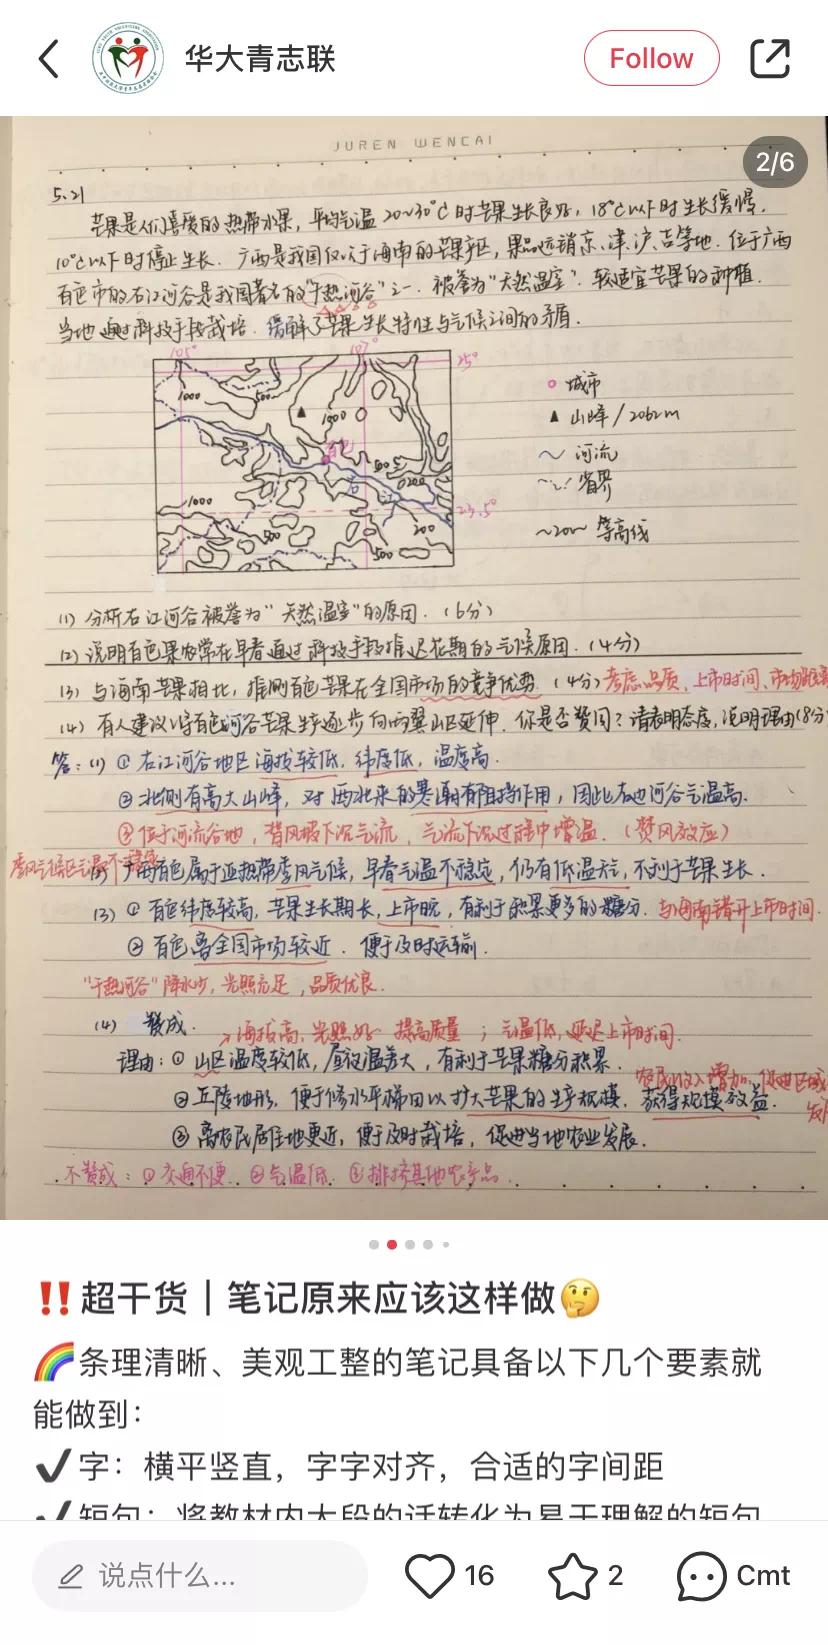 华大青志联
Follow
JUREN WENCAI
2/6
5.21
芒果是人们喜爱的热带水果，平均气温20~30°C时芒果生长良好，18°C以下时生长缓慢，
10°C以下时停止生长．广西是我国仅次于海南的芒果产区，果品远销京、津、沪、吉等地．位于广西
百色市的右江河谷是我国著名的"干热河谷"之一．被誉为"天然温室"．较适宜芒果的种植．
当地通过科技手段栽培．缓解了芒果生长特性与气候之间的矛盾．
105° 107° 25°
1000 500 1000
百色
500 200
右 江
1000 23.5°
500 200 500
城市
▲ 山峰/2062m
河流
省界
~200~ 等高线
(1) 分析右江河谷被誉为"天然温室"的原因．(6分)
(2) 说明百色果农常在早春通过科技手段推迟花期的气候原因．(4分)
(3) 与海南芒果相比，推测百色芒果在全国市场的竞争优势．(4分) 考虑品质、上市时间、市场距离
(4) 有人建议将百色河谷芒果生产逐步向两翼山区延伸．你是否赞同？请表明态度，说明理由(8分
答：(1) ① 右江河谷地区海拔较低，纬度低，温度高．
② 北侧有高大山峰，对西北来的寒潮有阻挡作用，因此右江河谷气温高．
③ 位于河流谷地，背风坡下沉气流，气流下沉过程中增温．(焚风效应)
季风气候区气温不稳定
广西百色属于亚热带季风气候，早春气温不稳定，仍有低温天气，不利于芒果生长．
(3) ① 百色纬度较高，芒果生长期长，上市晚，有利于积累更多的糖分．与海南错开上市时间．
② 百色离全国市场较近．便于及时运输．
"干热河谷"降水少，光照充足，品质优良．
(4) 赞成． →海拔高，光照好 提高质量；气温低，延迟上市时间．
理由：① 山区温度较低，昼夜温差大，有利于芒果糖分积累．
农民收入增加，促进区域
② 丘陵地形，便于修水平梯田以扩大芒果的生产规模．获得规模效益．
③ 离农民居住地更近，便于及时栽培，促进当地农业发展．
不赞成：① 交通不便．② 气温低．③ 排挤其他农产品．
‼️超干货｜笔记原来应该这样做🤔
🌈条理清晰、美观工整的笔记具备以下几个要素就
能做到：
✔️字：横平竖直，字字对齐，合适的字间距
✔️短句：将教材内大段的话转化为易于理解的短句
说点什么...
16
2
Cmt